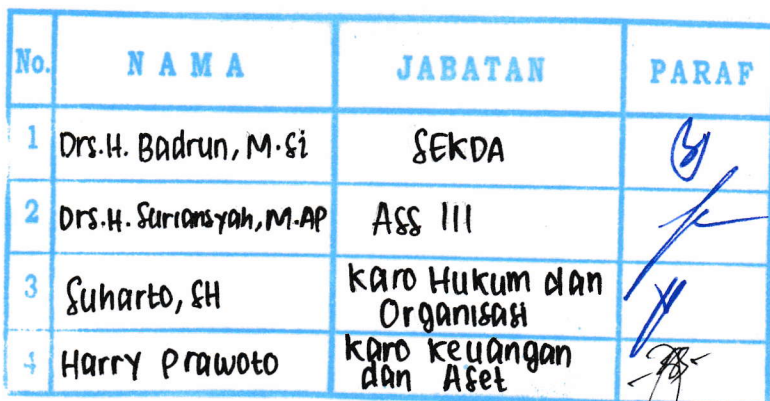 No. NAMA JABATAN PARAF
1 Drs. H. Badrun, M.Si SEKDA
2 Drs. H. Suriansyah, M.AP Ass III
3 Suharto, SH Karo Hukum dan
Organisasi
4 Harry Prawoto Karo Keuangan
dan Aset